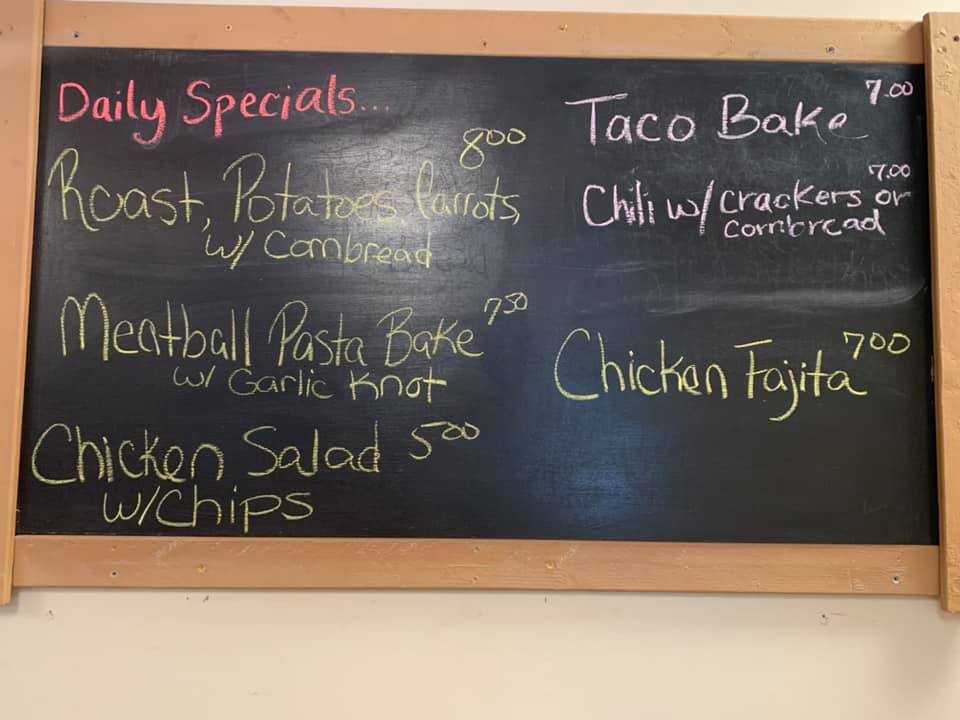 Daily Specials...
8.00
Roast, Potatoes Carrots,
w/ Cornbread
Meatball Pasta Bake 7.50
w/ Garlic Knot
Chicken Salad 5.00
w/Chips
Taco Bake 7.00
7.00
Chili w/ crackers or
cornbread
Chicken Fajita 7.00